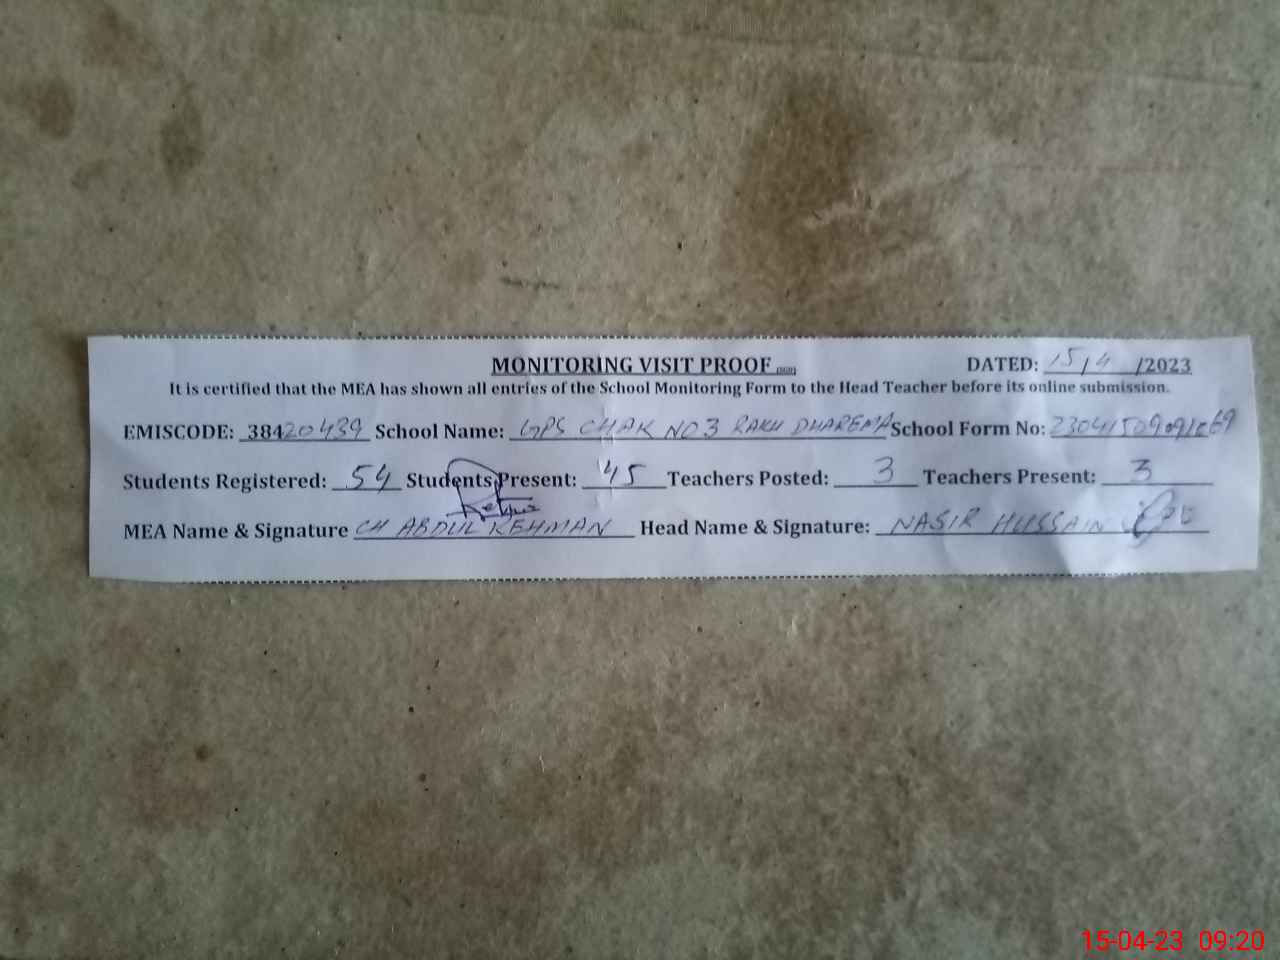 MONITORING VISIT PROOF
DATED: 15/4/2023
It is certified that the MEA has shown all entries of the School Monitoring Form to the Head Teacher before its online submission.
EMISCODE: 38420439 School Name: GPS CHAK NO 3 RAKH DHAREMA School Form No:
Students Registered: 54 Students Present: 45 Teachers Posted: 3 Teachers Present: 3
MEA Name & Signature CH ABDUL REHMAN Head Name & Signature: NASIR HUSSAIN
15-04-23 09:20